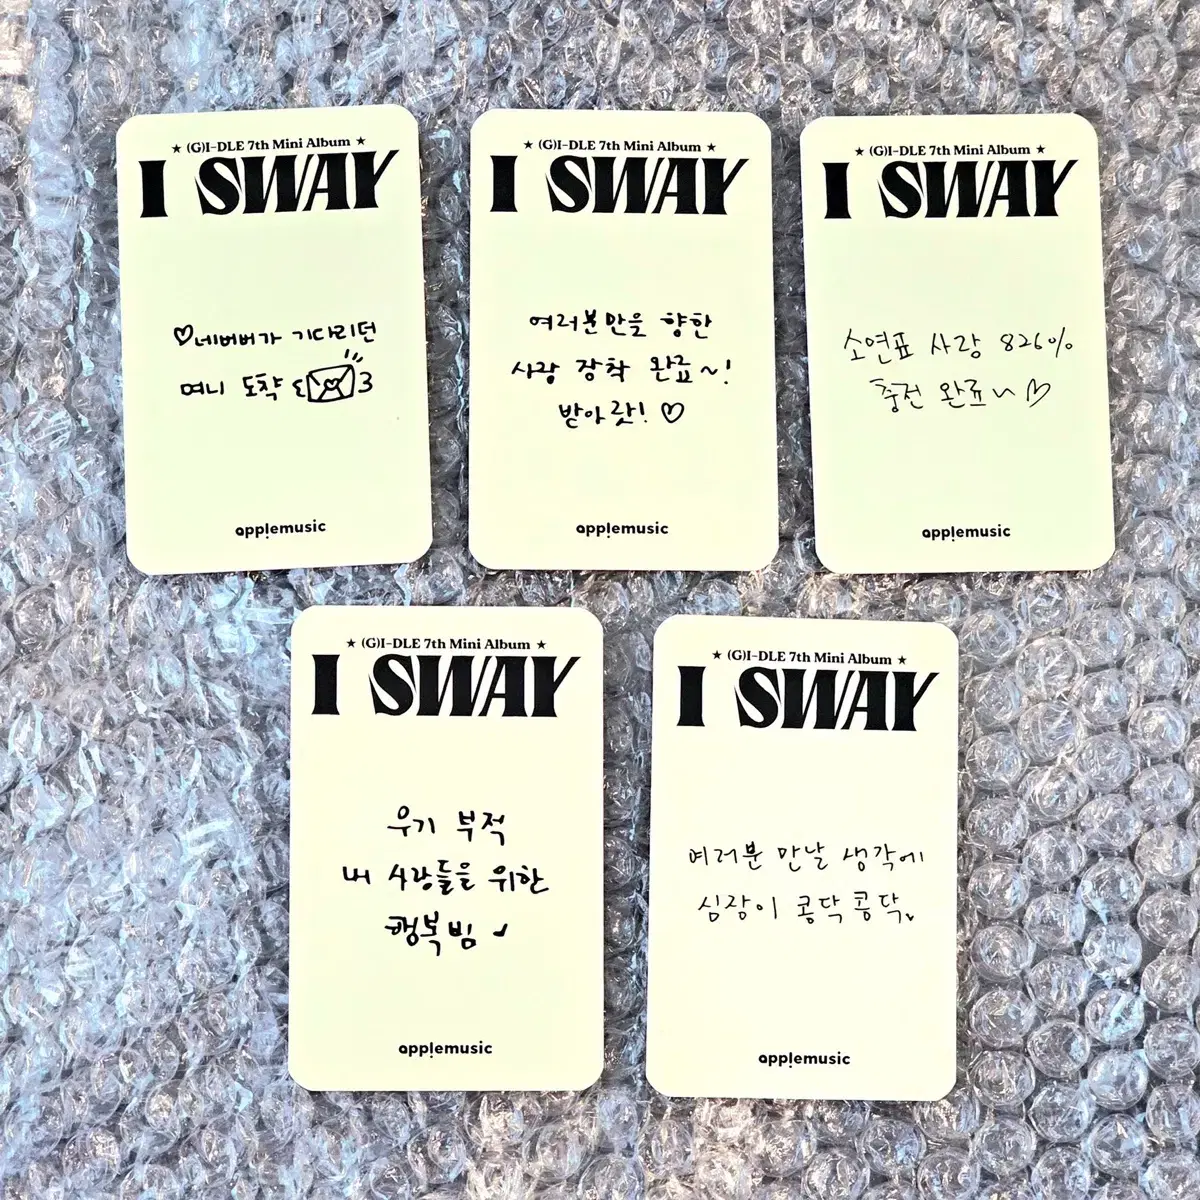 ★ (G)I-DLE 7th Mini Album ★
I SWAY
♡네버버가 기다리던
며니 도착 ε💌3
applemusic
★ (G)I-DLE 7th Mini Album ★
I SWAY
여러분만을 향한
사랑 장착 완료~!
받아랏! ♡
applemusic
★ (G)I-DLE 7th Mini Album ★
I SWAY
소연표 사랑 826%
충전 완료~ ♡
applemusic
★ (G)I-DLE 7th Mini Album ★
I SWAY
우기 부적
내 사랑들을 위한
행복빔
applemusic
★ (G)I-DLE 7th Mini Album ★
I SWAY
여러분 만날 생각에
심장이 콩닥콩닥
applemusic